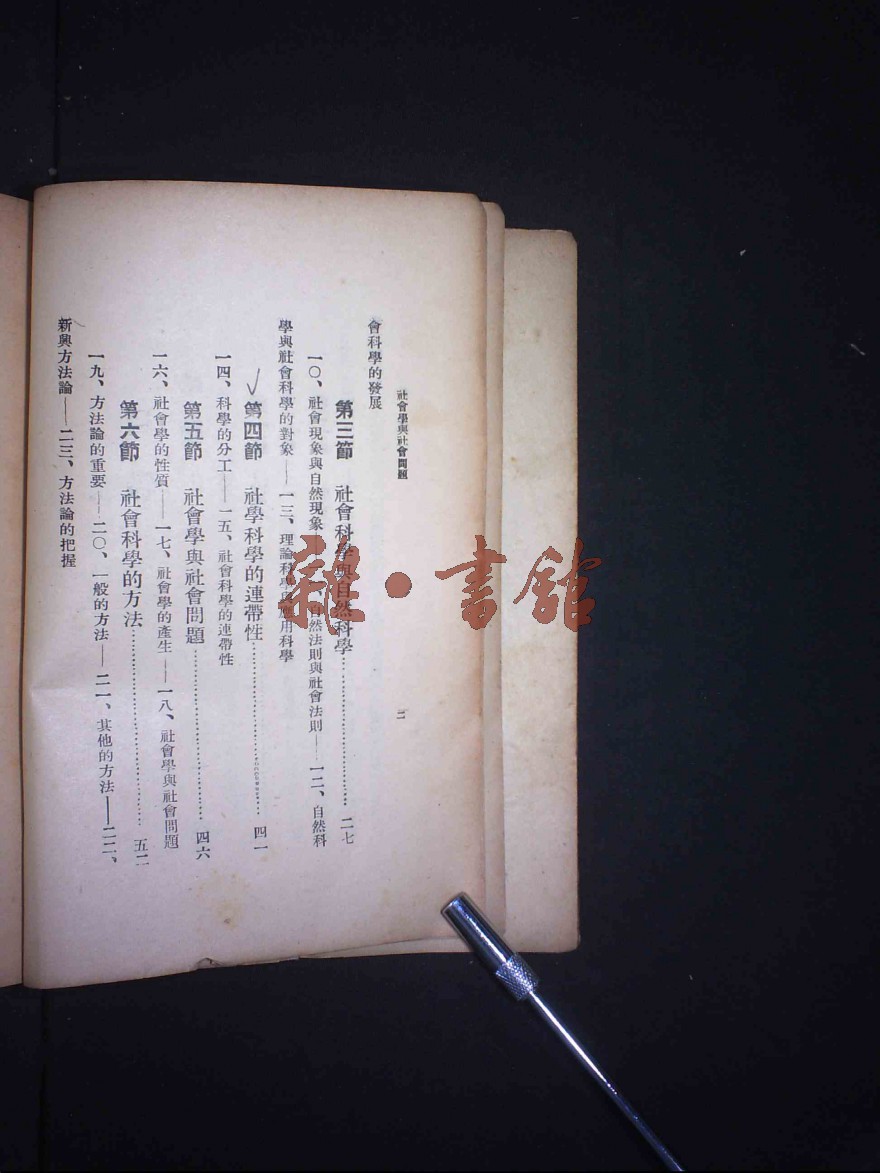 社會學與社會問題 二
會科學的發展
第三節 社會科學與自然科學……二七
一〇、社會現象與自然現象 自然法則與社會法則——一二、自然科
學與社會科學的對象——一三、理論科學與應用科學
第四節 社學科學的連帶性……四一
一四、科學的分工——一五、社會科學的連帶性
第五節 社會學與社會問題……四六
一六、社會學的性質——一七、社會學的產生——一八、社會學與社會問題
第六節 社會科學的方法……五二
一九、方法論的重要——二〇、一般的方法——二一、其他的方法——二二、
新興方法論——二三、方法論的把握
雜·書館